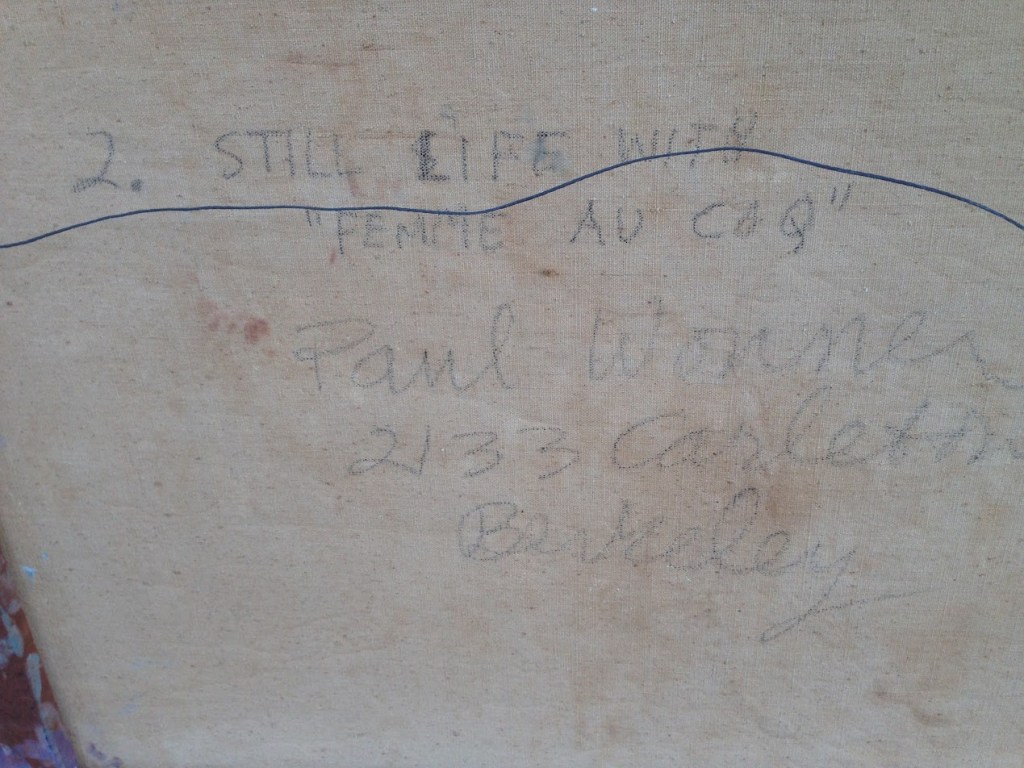 2. STILL LIFE WITH
"FEMME AU COQ"
Paul Wonner
2133 Carleton
Berkeley